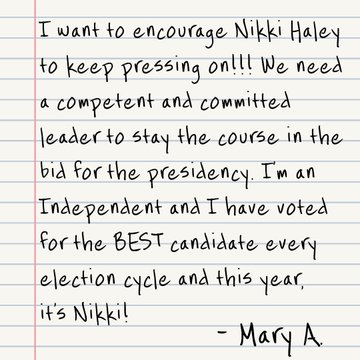 I want to encourage Nikki Haley
to keep pressing on!!! We need
a competent and committed
leader to stay the course in the
bid for the presidency. I'm an
Independent and I have voted
for the BEST candidate every
election cycle and this year,
it's Nikki!
- Mary A.